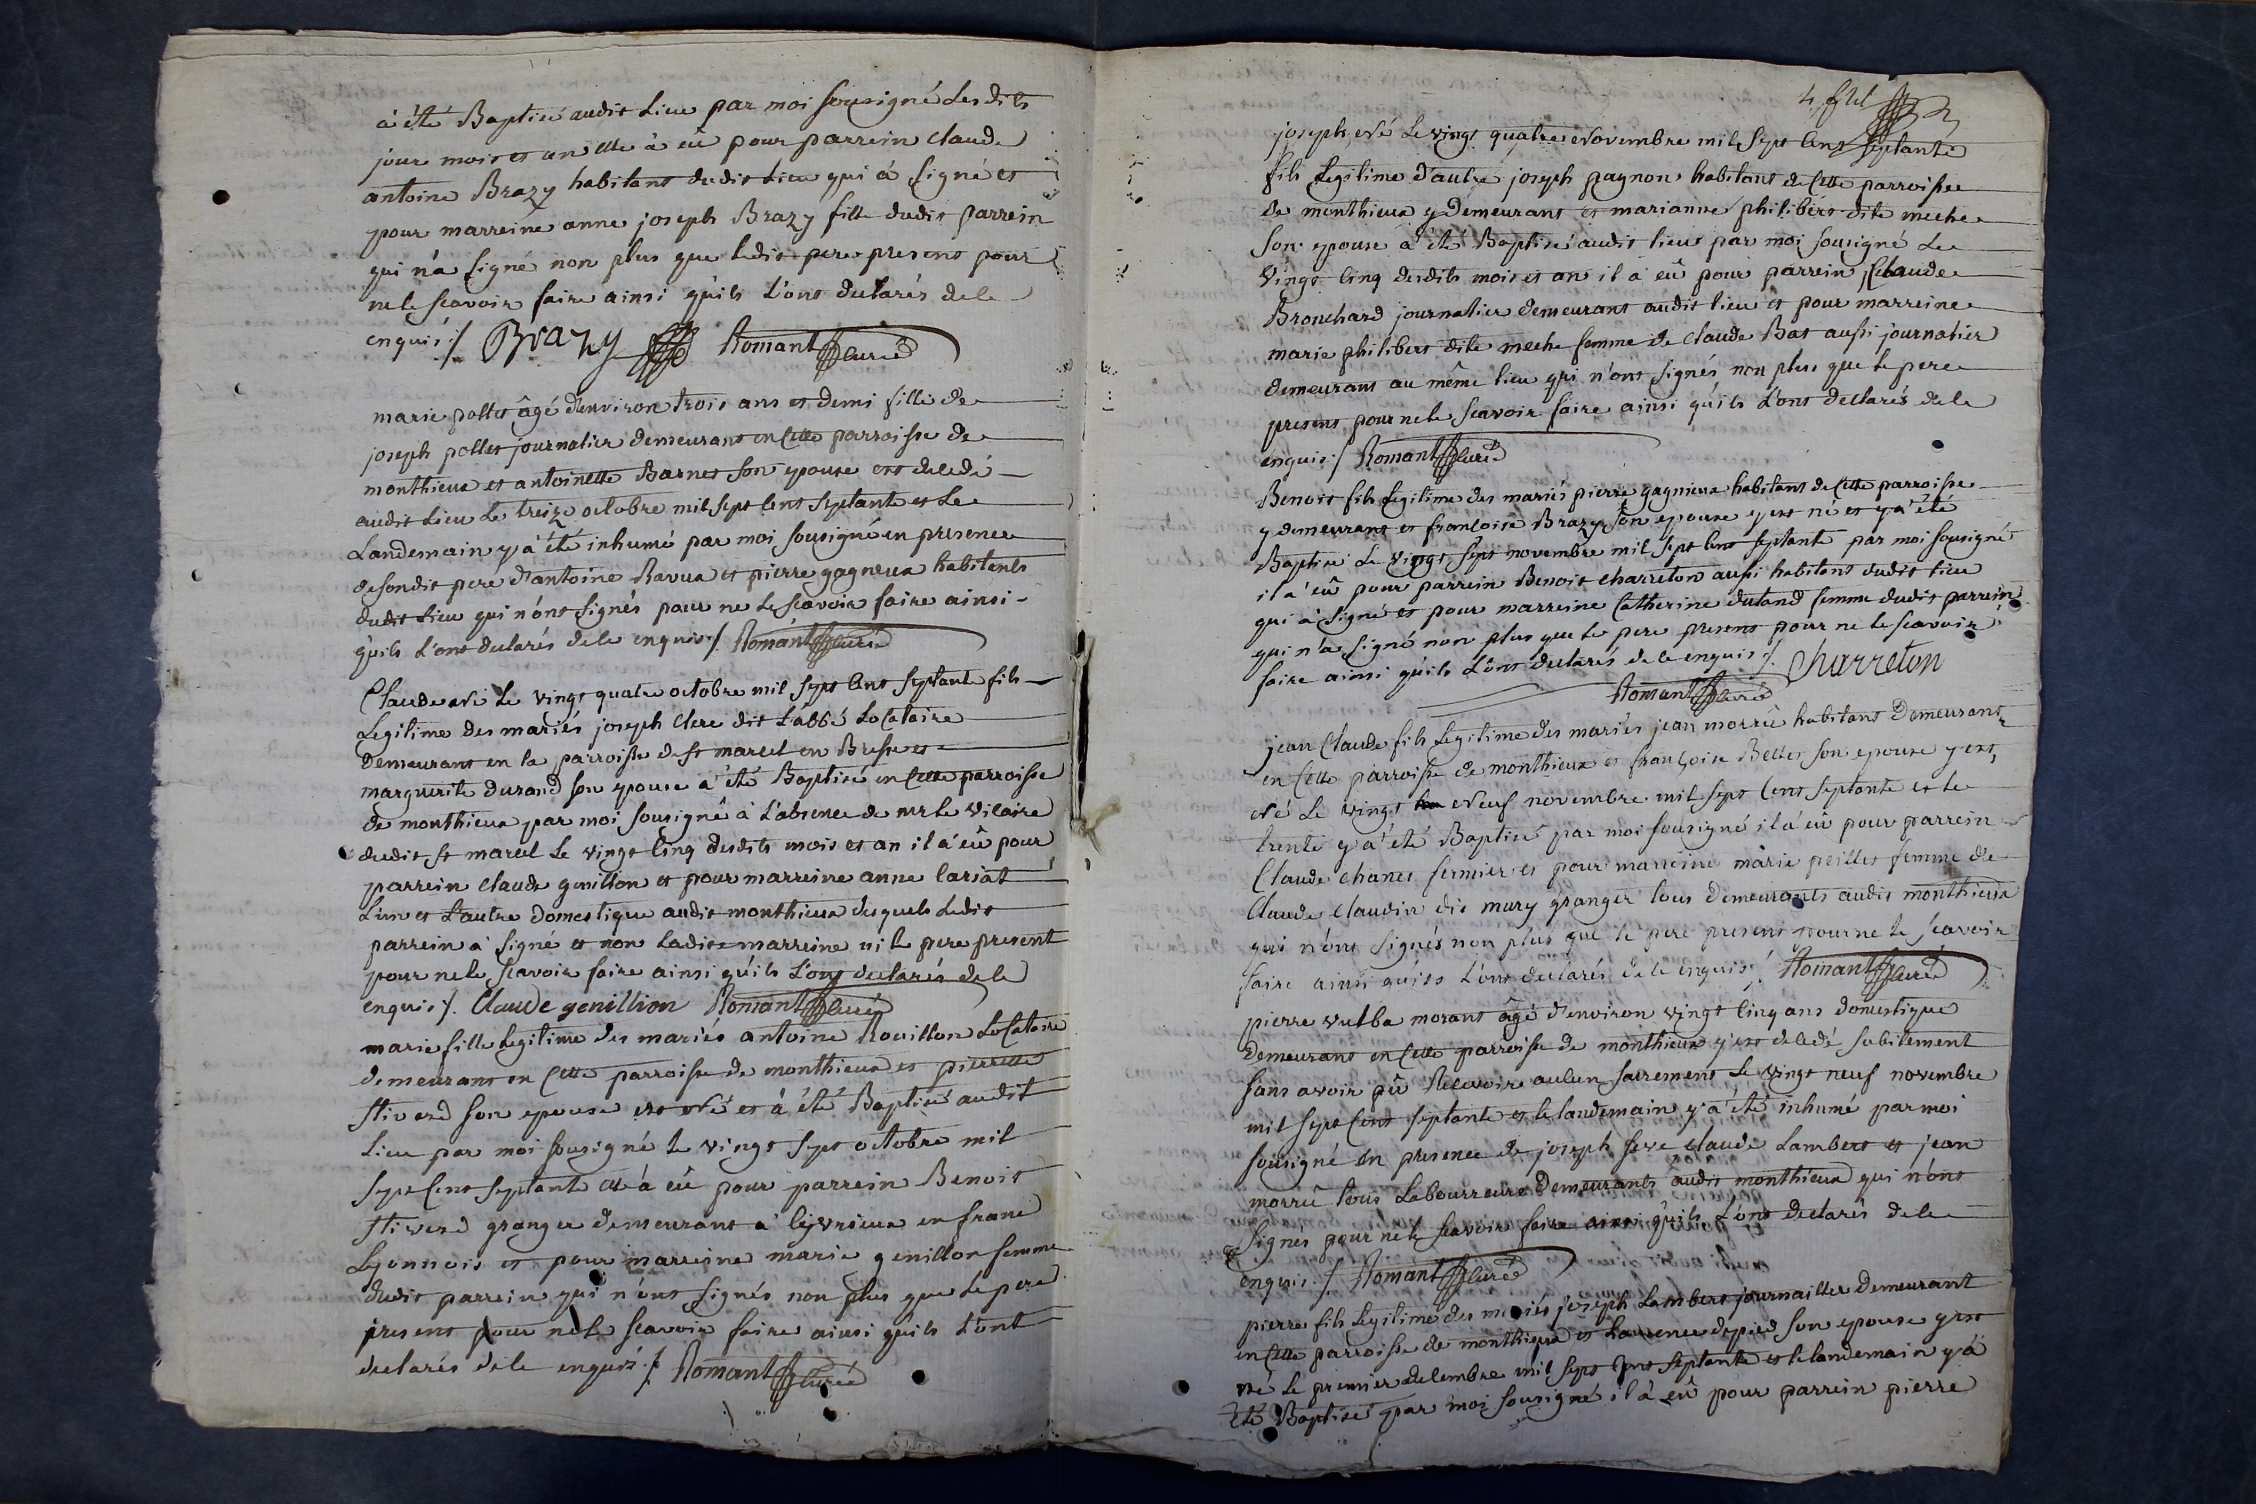 à été Baptisé audit Lieu par moi sousigné Lesdits
jour mois et an elle à eû pour parrein claude
antoine Brazy habitant dudit Lieu qui à signé et
pour marreine anne joseph Brazy fille dudit parrein
qui n'à signé non plus que ledit pere present pour
ne le scavoir faire ainsi qu'ils L'ont declarés de le
enquis ./. Brazy Romant curé
marie pollet âgé d'environ trois ans et demi fille de
joseph pollet journalier demeurant en cette parroisse de
monthieux et antoinette Barnet son epouse est decedé
audit Lieu Le treize octobre mil sept cent septante et Le
Landemain y à été inhumé par moi sousigné en presence
desondit pere d'antoine Ravua et pierre gagneux habitants
dudit Lieu qui n'ont signés pour ne Le scavoir faire ainsi
qu'ils L'ont declarés de le enquis ./. Romant curé
Claude né Le vingt quatre octobre mil sept cent septante fils
Legitime des mariés joseph Clerc dit L'abbé Locataire
demeurant en la parroisse de st marcel en Bresse et
marguerite durand son epouse à été Baptisé en cette parroisse
de monthieux par moi sousigné à L'absence de mr le vicaire
dudit st marcel Le vingt cinq desdits mois et an il à eû pour
parrein claude genillon et pour marreine anne lariat
L'un et L'autre domestique audit monthieux desquels Ledit
parrein à signé et non Ladite marreine ni le pere present
pour ne le scavoir faire ainsi qu'ils L'ont declarés de le
enquis ./. Claude genillion Romant curé
marie fille Legitime des mariés antoine Rouillon Locataire
demeurant en cette parroisse de monthieux et pierrette
Tivend son epouse est né et à été Baptisé audit
Lieu par moi sousigné Le vingt sept octobre mil
sept cent septante elle à eû pour parrein Benoit
Tivend granger demeurant à civrieux en franc
Lyonnois et pour marreine marie genillon femme
dudit parrein qui n'ont signés non plus que Le pere
present pour ne le scavoir faire ainsi qu'ils L'ont
declarés de le enquis ./. Romant curé
joseph né Le vingt quatre novembre mil sept cent septante
fils Legitime d'autre joseph pagnon habitant de cette parroisse
de monthieux y demeurant et marianne philibert dite meche
son epouse à été Baptisé audit lieu par moi sousigné Le
vingt cinq desdits mois et an il à eû pour parrein Claude
Bronchard journalier demeurant audit lieu et pour marreine
marie philibert dite meche femme de claude Bas aussi journalier
demeurant au même lieu qui n'ont signés non plus que le pere
present pour ne le scavoir faire ainsi qu'ils L'ont declarés de le
enquis ./. Romant curé
Benoit fils Legitime des mariés pierre gagnieux habitant de cette parroisse
y demeurant et françoise Brazy son epouse y est né et y à été
Baptisé Le vingt sept novembre mil sept cent septante par moi sousigné
il à eû pour parrein Benoit charreton aussi habitant dudit lieu
qui à signé et pour marreine Catherine duland femme dudit parrein
qui n'a signé non plus que le pere present pour ne le scavoir
faire ainsi qu'ils L'ont declarés de le enquis ./. Charreton
Romant curé
jean Claude fils Legitime des mariés jean morrû habitant demeurant
en cette parroisse de monthieux et françoise Bellet son epouse y est
né Le vingt neuf novembre mil sept cent septante et le
trente y à été Baptisé par moi sousigné il à eû pour parrein
Claude chanet fermier et pour marreine marie peillet femme de
Claude claudin dit mury granger tous demeurants audit monthieux
qui n'ont signés non plus que le pere present pour ne le scavoir
faire ainsi qu'ils L'ont declarés de le enquis ./. Romant curé
pierre vulba morant âgé d'environ vingt cinq ans domestique
demeurant en cette parroisse de monthieux y est decedé subitement
sans avoir pû Recevoir aucun sacrement Le vingt neuf novembre
mil sept cent septante et le landemain y à été inhumé par moi
sousigné en presence de joseph seve claude Lambert et jean
morrû tous Labourreurs demeurants audit monthieux qui n'ont
signes pour ne le scavoir faire ainsi qu'ils L'ont declarés de le
enquis ./. Romant curé
pierre fils Legitime des mariés joseph Lambert journaillier demeurant
en cette parroisse de monthieux et Laurence depied son epouse y est
né Le premier decembre mil sept cent septante et le landemain y à
été Baptisé par moi sousigné il à eû pour parrein pierre